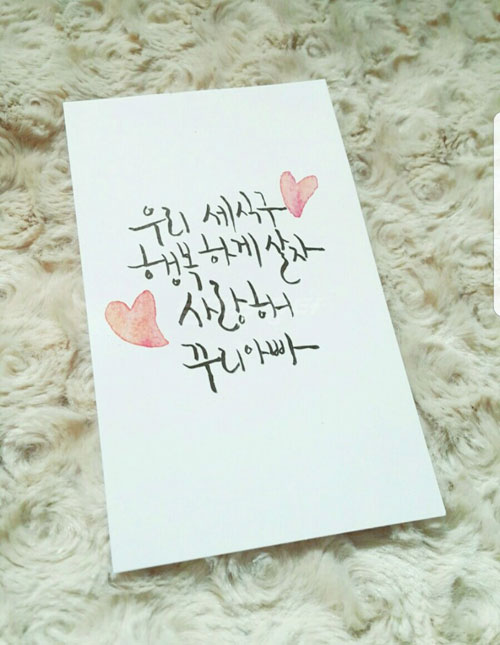 우리 세식구
행복하게 살자
사랑혀
꾸리아빠